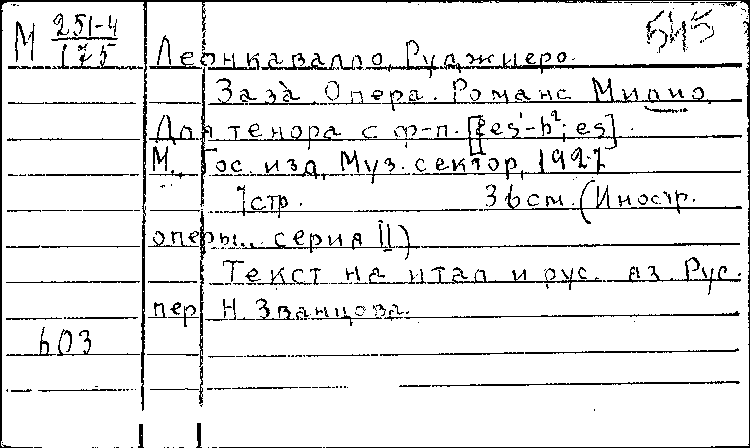 М 251-4 545
175 Леонкавалло, Руджиеро.
Заза. Опера. Романс Милио.
Для тенора с ф-п. [es¹-b²; es].
М., Гос. изд., Муз. сектор, 1927
7стр. 36см. (Иностр.
оперы.. серия II)
Текст на итал и рус. яз. Рус.
пер Н. Званцова.
603